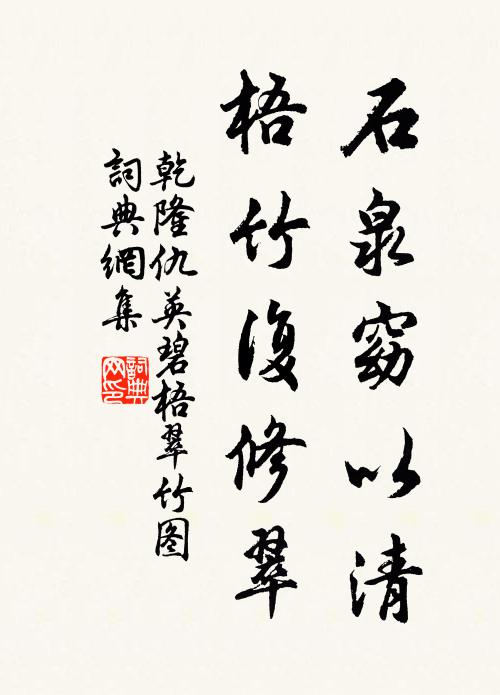 石泉窈以清
梧竹復修翠
乾隆仇英碧梧翠竹图
詞典網集
詞典网印